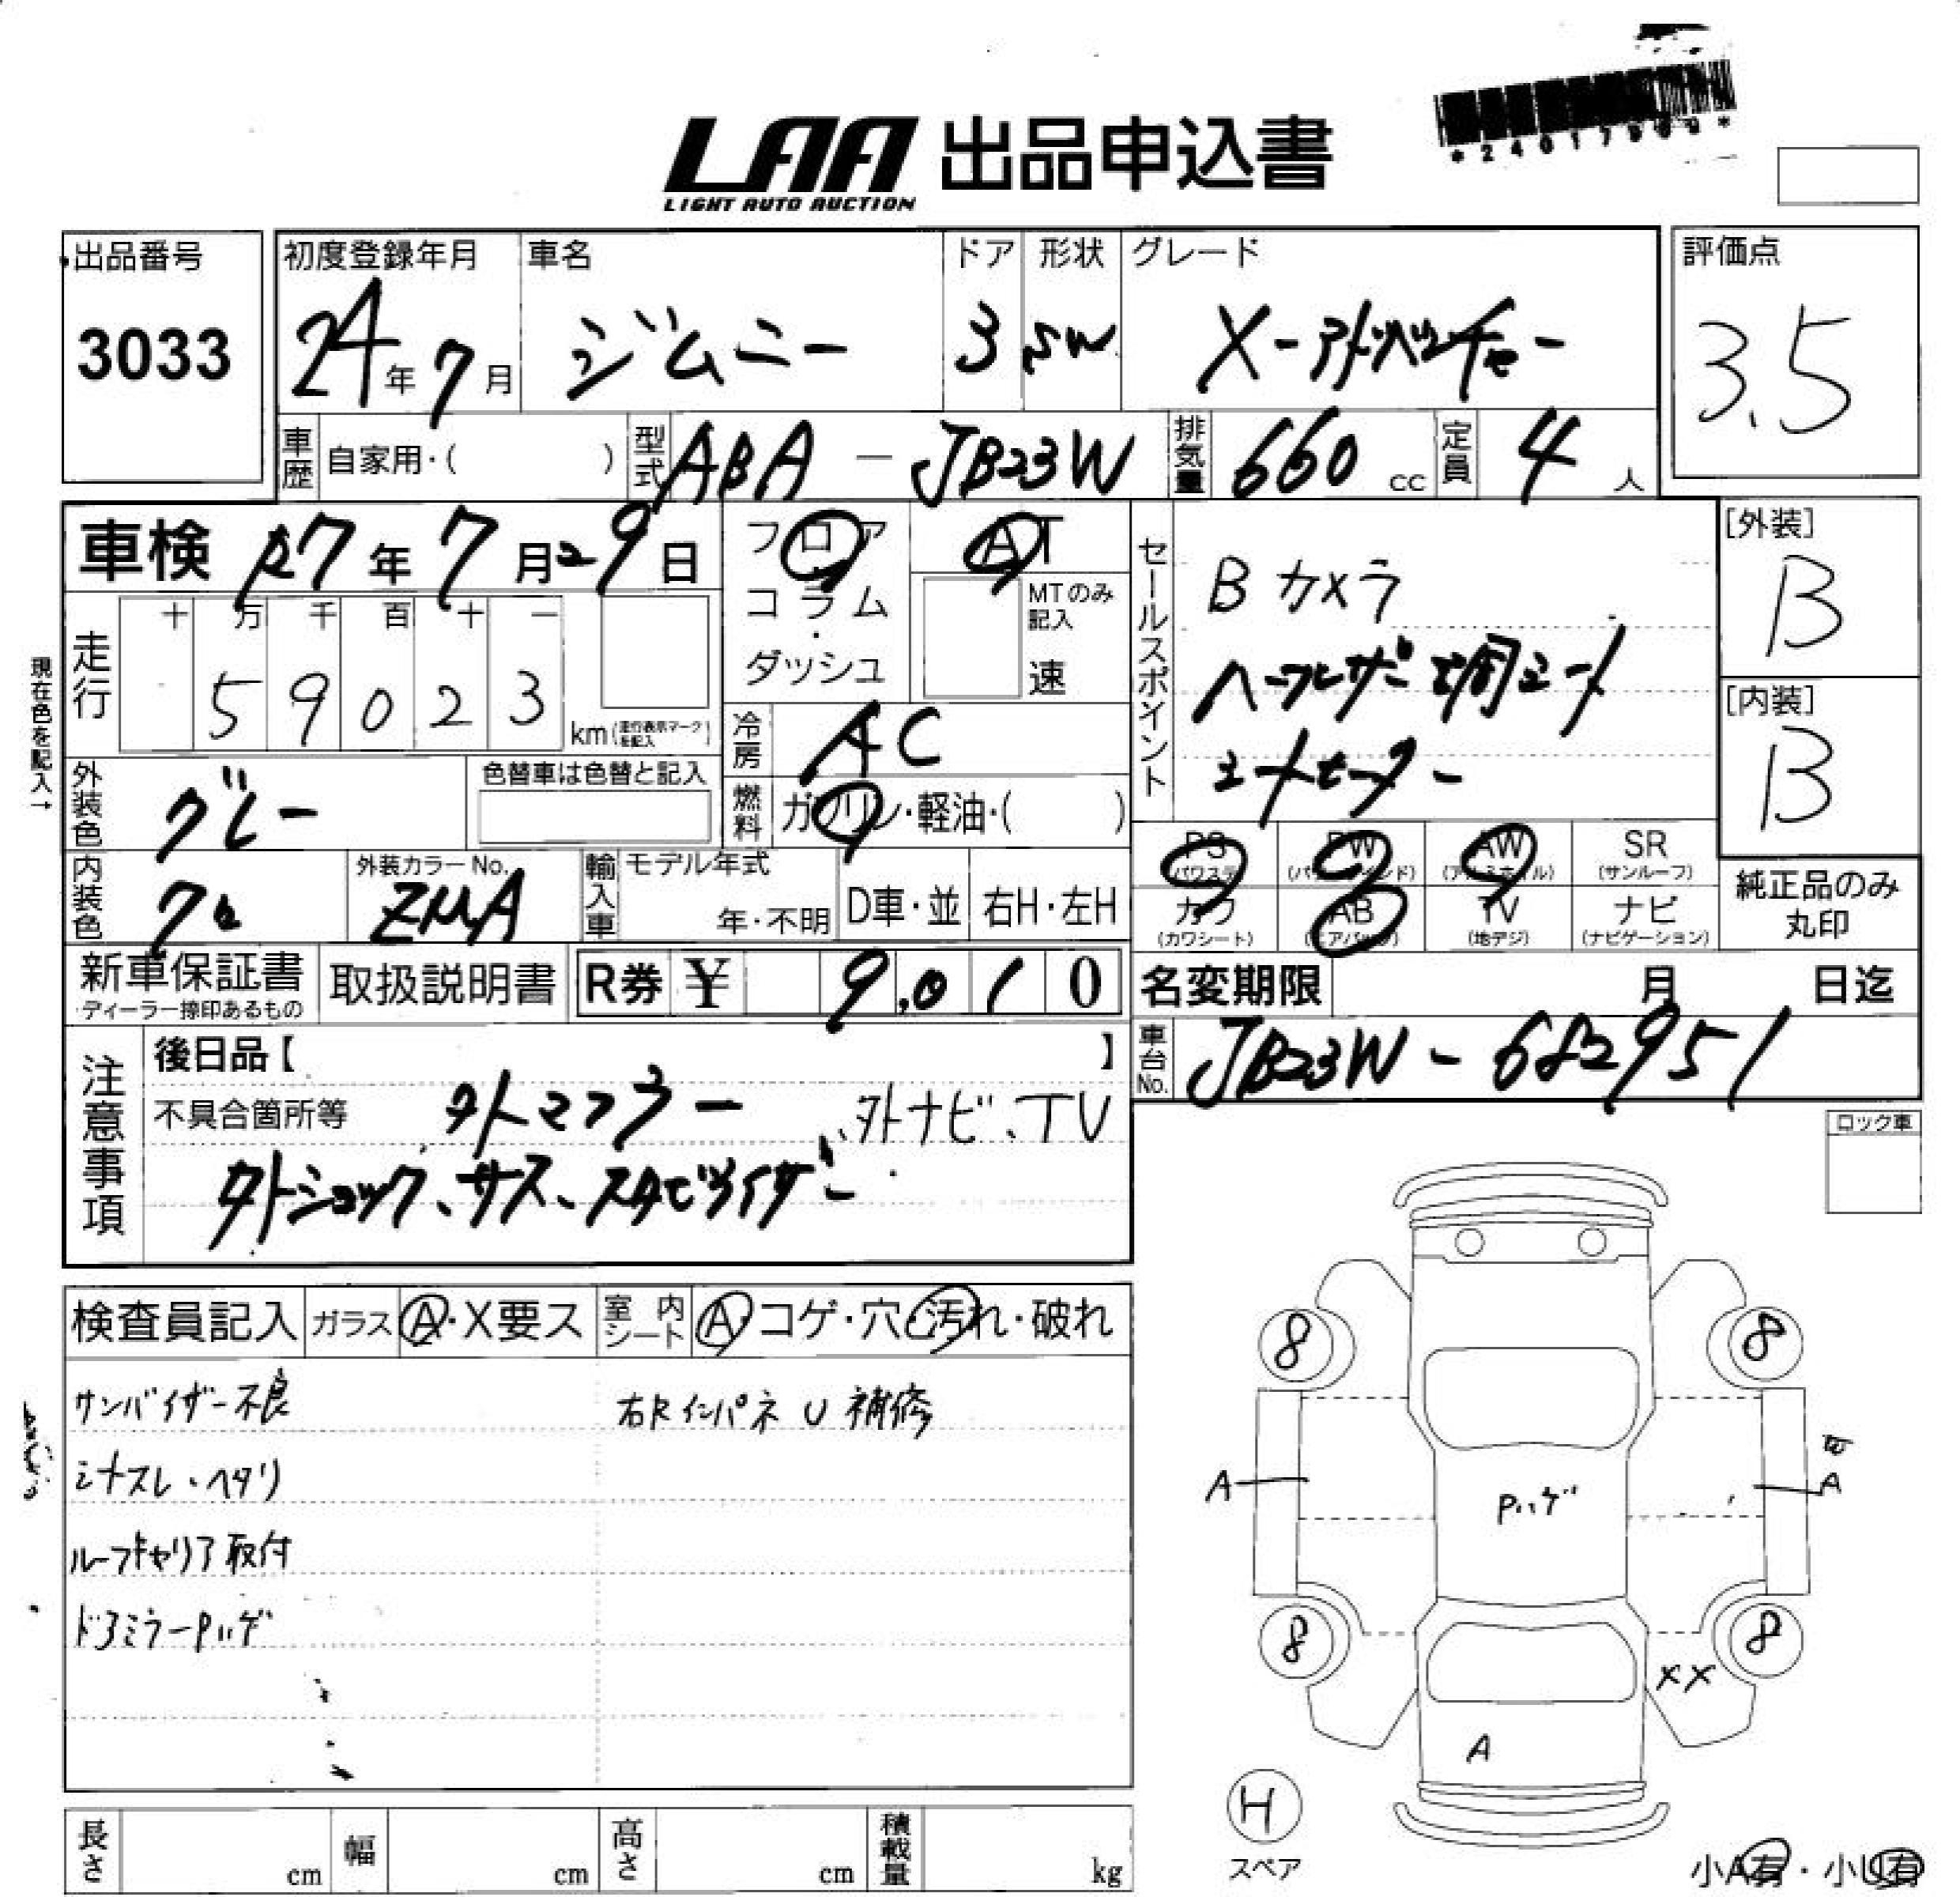 *24017989*
LAA 出品申込書
LIGHT AUTO AUCTION
出品番号 3033
初度登録年月 24年7月
車名 ジムニー
ドア 3
形状 SW
グレード X-アドベンチャー
評価点 3.5
車歴 自家用・( )
型式 ABA - JB23W
排気量 660 cc
定員 4 人
車検 R7年7月29日
フロア・コラム・ダッシュ
AT
MTのみ記入 速
セールスポイント
Bカメラ
ハーフレザー調シート
シートヒーター
[外装] B
[内装] B
現在色を記入→
走行 十万千百十一
59023 km(走行表示マークを記入)
冷房 AC
燃料 ガソリン・軽油・( )
外装色 グレー
色替車は色替と記入
内装色 クロ
外装カラーNo. ZMA
輸入車 モデル年式
年・不明 D車・並 右H・左H
PS (パワステ) PW (パワーウインド) AW (アルミホイル) SR (サンルーフ)
カワ (カワシート) AB (エアバッグ) TV (地デジ) ナビ (ナビゲーション)
純正品のみ丸印
新車保証書 ディーラー捺印あるもの
取扱説明書
R券 ¥ 9,010
名変期限 月 日迄
車台No. JB23W - 682951
注意事項
後日品【 】
不具合箇所等 外マフラー、外ナビ、TV
外ショック、サス、スタビライザー
ロック車
検査員記入 ガラス A・X要ス 室内シート A・コゲ・穴・汚れ・破れ
サンバイザー不良
シートスレ・ヘタリ
ルーフキャリア取付
ドアミラーPハゲ
右Rインパネ U 補修
8 8
A Pハゲ A
8 8
XX
A
H
スペア
小A有・小U有
長さ cm 幅 cm 高さ cm 積載量 kg